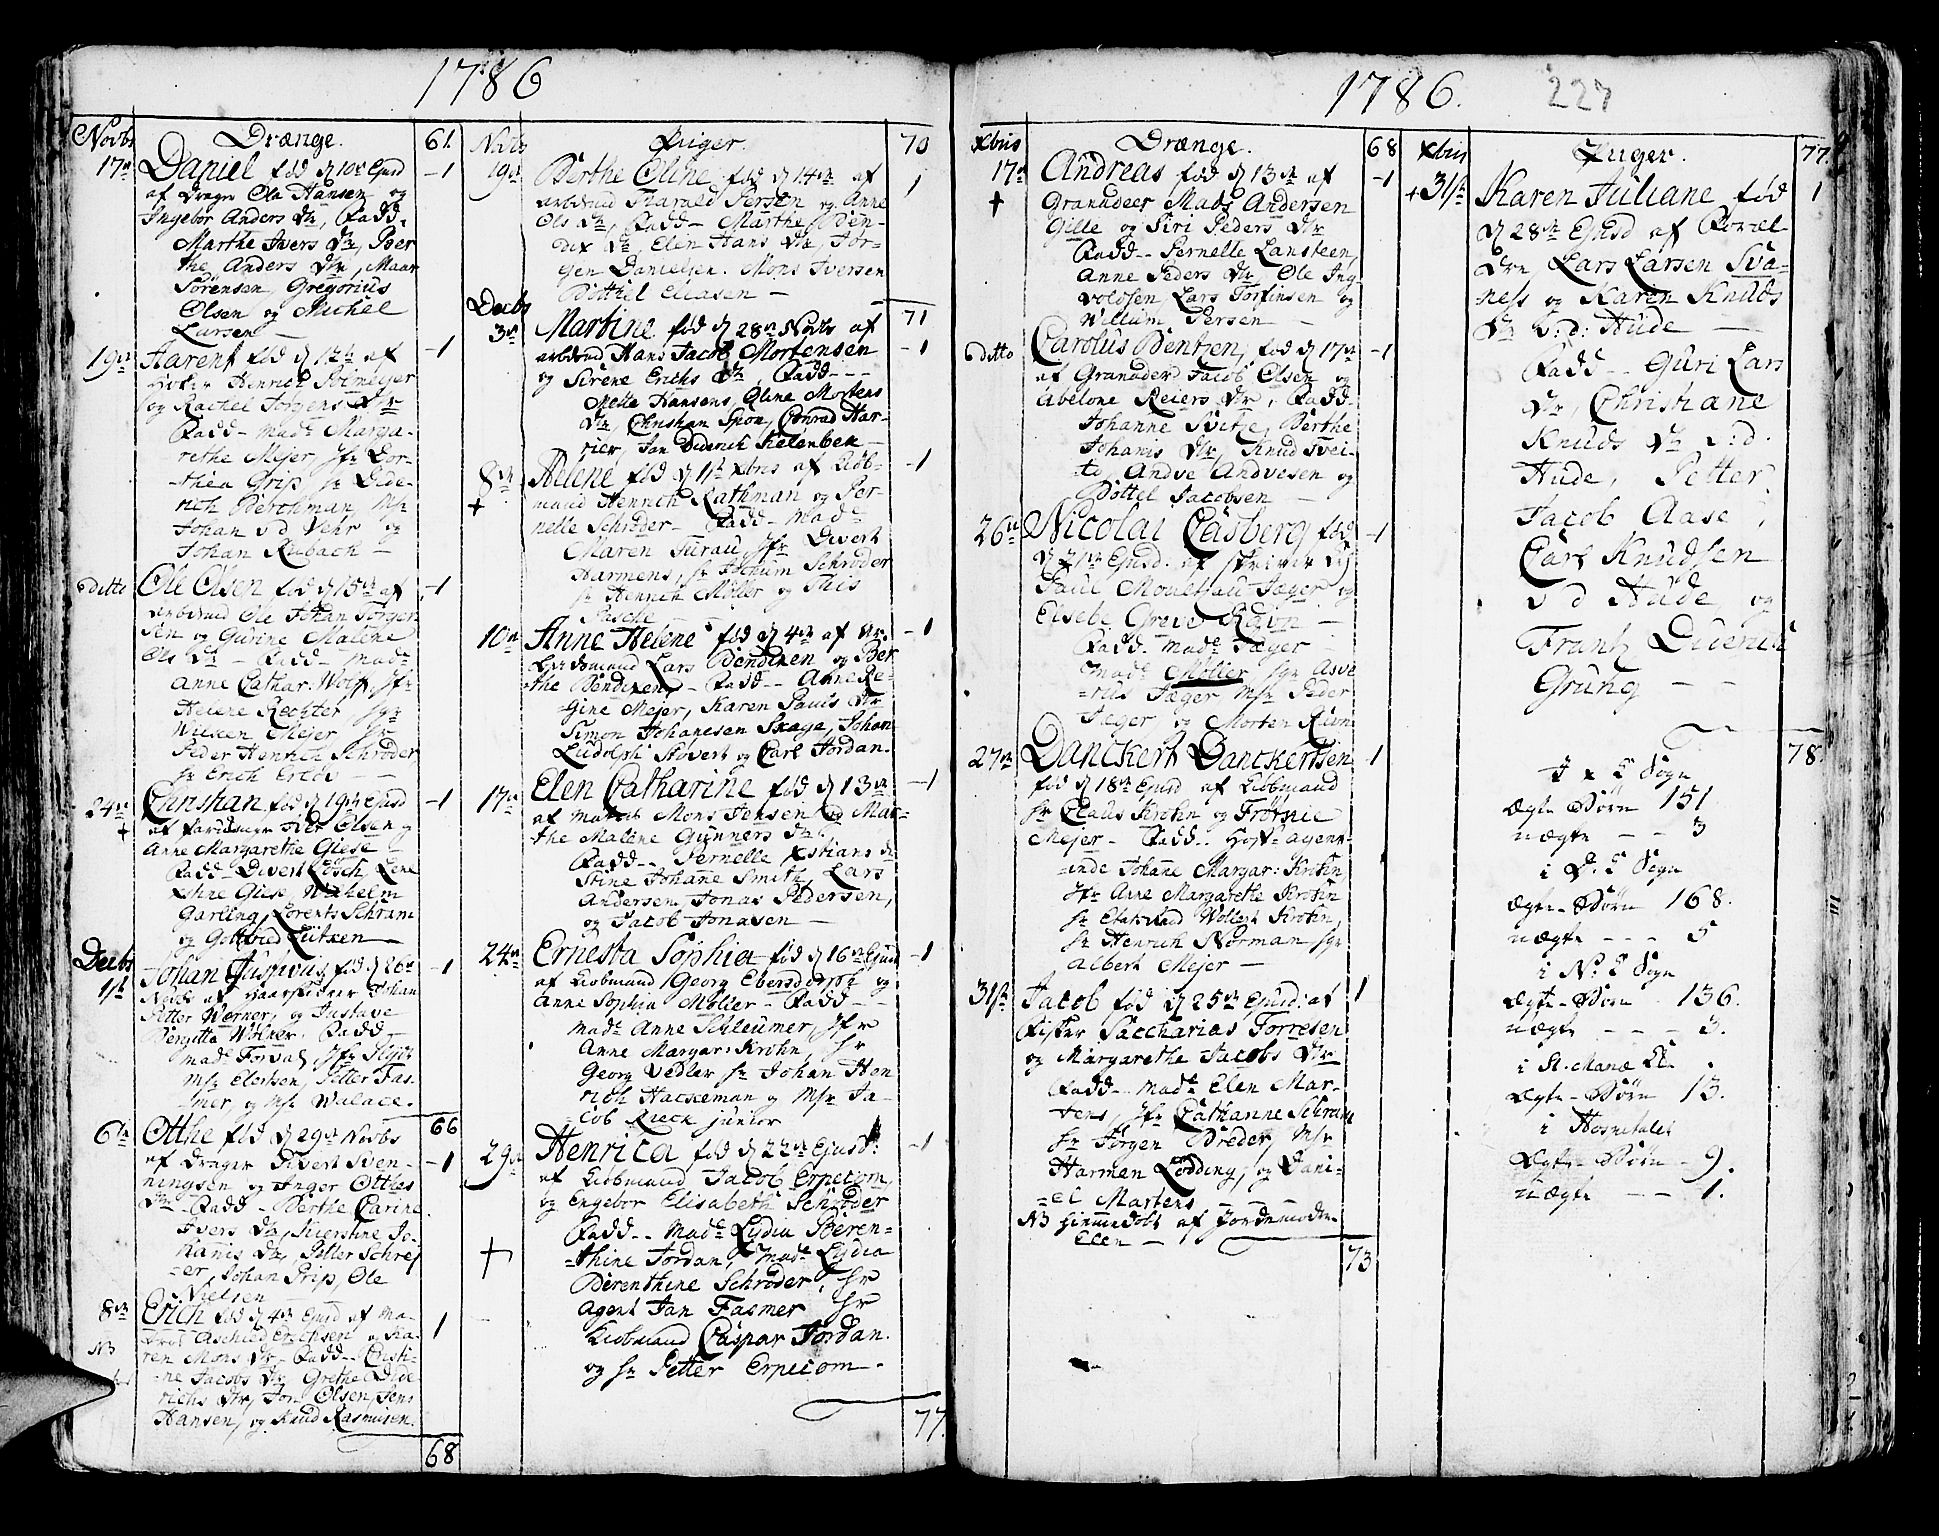 1786
Novbr Drænge. 61.
17de Daniel fød d 10de Ejusd -1
af Drager Ola Hansen og
Ingebor Anders Dtr, Fadd.
Marthe Ivers Dtr, Ber
the Anders Dtr, Maar
Sørensen, Gregorius
Olsen og Michel
Larsen -
19de Harent fød d 12te af -1
Henrich Solmejer
og Rachel Jørgens Dtr
Fadd- Made Marga-
rethe Mejer, Jfr Dor-
thea Grip, Sr Dide-
rich Berchman, Msr
Johan v d Vehr og
Johan Rubach -
ditto Ole Olsen fød d 15de af -1
arbeimd Ole Johan Jørgen
sen og Gurine Malene
Ols Dtr - Fadd- Made
Anne Cathar: Wolf, Jfr
Helene Rechter
Wilken Mejer, Sr
Peder Henrich Schrøder
Sr Erich
24de Christian fød d 19de Ejusd -1
+ af Iver Olsen
Anne Margarethe Giese -
Fadd- Divert Losch, Lene
Stine Giese, Wilhelm
Garling, Lorents Schram
og Gottfried Lütken
Decbr Johan Justvus fød d 26de -1
1ste Novbr af Johan
Petter Werner, og Gustave
Bergitta Wølner. Fadd-
made Forval, Jfr
Msr Elertsen, Petter Fas-
mer, og Msr Walace.
6te Otthe fød d 29de Novbr 66
af Drager Divert Sven- -1
ningsen og Inger Otthes
Dtr - Fadd - Berthe Carine
Ivers Dtr, Kierstine Jo-
hanis Dtr, Petter Schrej
-er, Johan Prip, Ole
Nielsen
8de Erich fød d 4de Ejusd af Ma-
Aschild Erichsen og Ka- 1
NB ren Mons Dtr - Fadd-- Christi-
-ne Jacobs Dtr, Grethe Dide
richs Dtr, Jon Olsen, Jens
Hansen, og Knud Rasmusen.
68
Novbr Piger. 70
19de Berthe Oline fød d 14de af 1
arbeimd Harald Persen og Anne
Ols Dtr, Fadd- Marthe Ben-
dix Dtr, Elen Hans Dtr, Jør-
gen Danielsen. Mons Iversen
Bottel Eliasen -
Decbr 71
3de Martine fød d 28de Novbr af
arbeimd Hans Jacob Mortensen -1
og Sirene Erichs Dtr, Fadd---
Mette Hansens, Oline Mortens
Dtr, Christian Spon, Conrad Har-
rier, Jan Diderich Kelenbek -
8de Helene fød d 1ste Xbris af Kiøb- -1
+ mand Henrich Rathman og Per-
nelle Schrøder- Fadd- made
Maren Jurau, Jfr Divert
Harmens, Sr Jochum Schrøder
Sr Henrich Møller og This
Pasche -
10de Anne Helene fød d 4de af Ar- -1
beidsmand Lars Bendixen og Ber
the Bendixen - Fadd-- Anne Re-
-gine Mejer, Karen Pauls Dtr
Simon Johanesen Skage, Johan
Ludolph Støvert og Carl Jordan.
17de Elen Catharine fød d 13de -1
af matros Mons Jensen og Mar-
the Malene Gunners Dtr
Fadd-- Pernelle Xstians d
Stine Johane Smith, Lars
Andersen, Jonas Pedersen,
og Jacob Jonasen -
24de Ernesta Sophia fød d 16de Ejusd -1
af Kiøbmand Georg Ebersdorph og
Anne Sophia Møller- Fadd--
made Anne Schleumer, Jfr
Anne Margar: Krohn, Sr
Georg Vedler Sr Johan Hen
rich Hackeman og Msr Ja-
cob Rieck junior
29de Henrica fød d 22de Ejusd: -1
af Kiøbmand Jacob Erpecom
og Engebor Elisabeth Schrøder
Fadd-- Made Lydia Beren-
+ -thine Jordan, Made Lydia
Berenthine Schrøder, Hr
Agent Jan Fasmer Hr
Kiøbmand Caspar Jordan.
og Sr Petter Erpecom -
77.
1786. 227
Xbris Drænge. 68
17de Andreas fød d 13de af -1
+ Granadeer Mads Andersen
Gille og Siri Peders Dtr
Fadd-- Pernelle Lansteen,
Anne Peders Dtr, Ole Ing-
voldsen, Lars Torfinsen og
Willum Persen -
ditto Carolus Bentzen, fød d 17de -1
af Granader Jacob Olsen og
Abelone Reiers Dtr, Fadd-
Johanne Svitje, Berthe
Johanis Dtr, Knud Tvei-
to, Andve Andvesen og
Bottel Jacobsen -
26de Nicolai Casberg fød -1
d 21de Ejusd. af skriver
Paul Jæger og
Elsebe Greve Ravn -
Fadd- made Jæger -
made Møller Sgr Asve
-rus Jæger, Msr Peder
Jæger, og Morten Ravn
27de Danckert Danckertsen -1
fød d 18de Ejusd af Kiøbmand
Sr Claus Krohn og Frotnie
Mejer - Fadd-- Hof Agent-
-inde Johane Margar: Krohn
Jfr Anne Margarethe Krohn
Sr Etatsraad Wollert Krohn,
Sr Henrich Norman Sgr
Albert Mejer -
31ste Jacob fød d 25de Ejusd: af 1
Fisker Saccharias Torresen
og Margarethe Jacobs Dtr
Fadd-- Made Elen Mar-
tens, Jfr Cathanne Schram
Sr Jørgen Breder, Msr
Harmen Lødding, og Dani-
=el Martens -
NB hiemmedøbt af Jordemoder
Elen -
73
Xbris Piger. 77.
+31ste Karen Juliane fød 1
d 28de Ejusd af Foræl-
dre Lars Larsen Sva-
ness og Karen Knuds
Dtr v:d: Hude -
Fadd-- Guri Lars
Dtr, Christiane
Knuds Dtr v:d.
Hude, Petter
Jacob Aase,
Carl Knudsen
v d Hude, og
Frantz Diderich
Grung - -
78.
I X K Sogn
Ægte-Børn 151
uægte -- 3
i D: K Sogn
ægte-Børn 168.
uægte --- 5
i N: K Sogn
Ægte-Børn 136.
uægte --- 3.
i St. Mariæ K
Ægte-Børn 13.
i Hospitalet
Ægte-Børn - 9.
uægte -- 1.